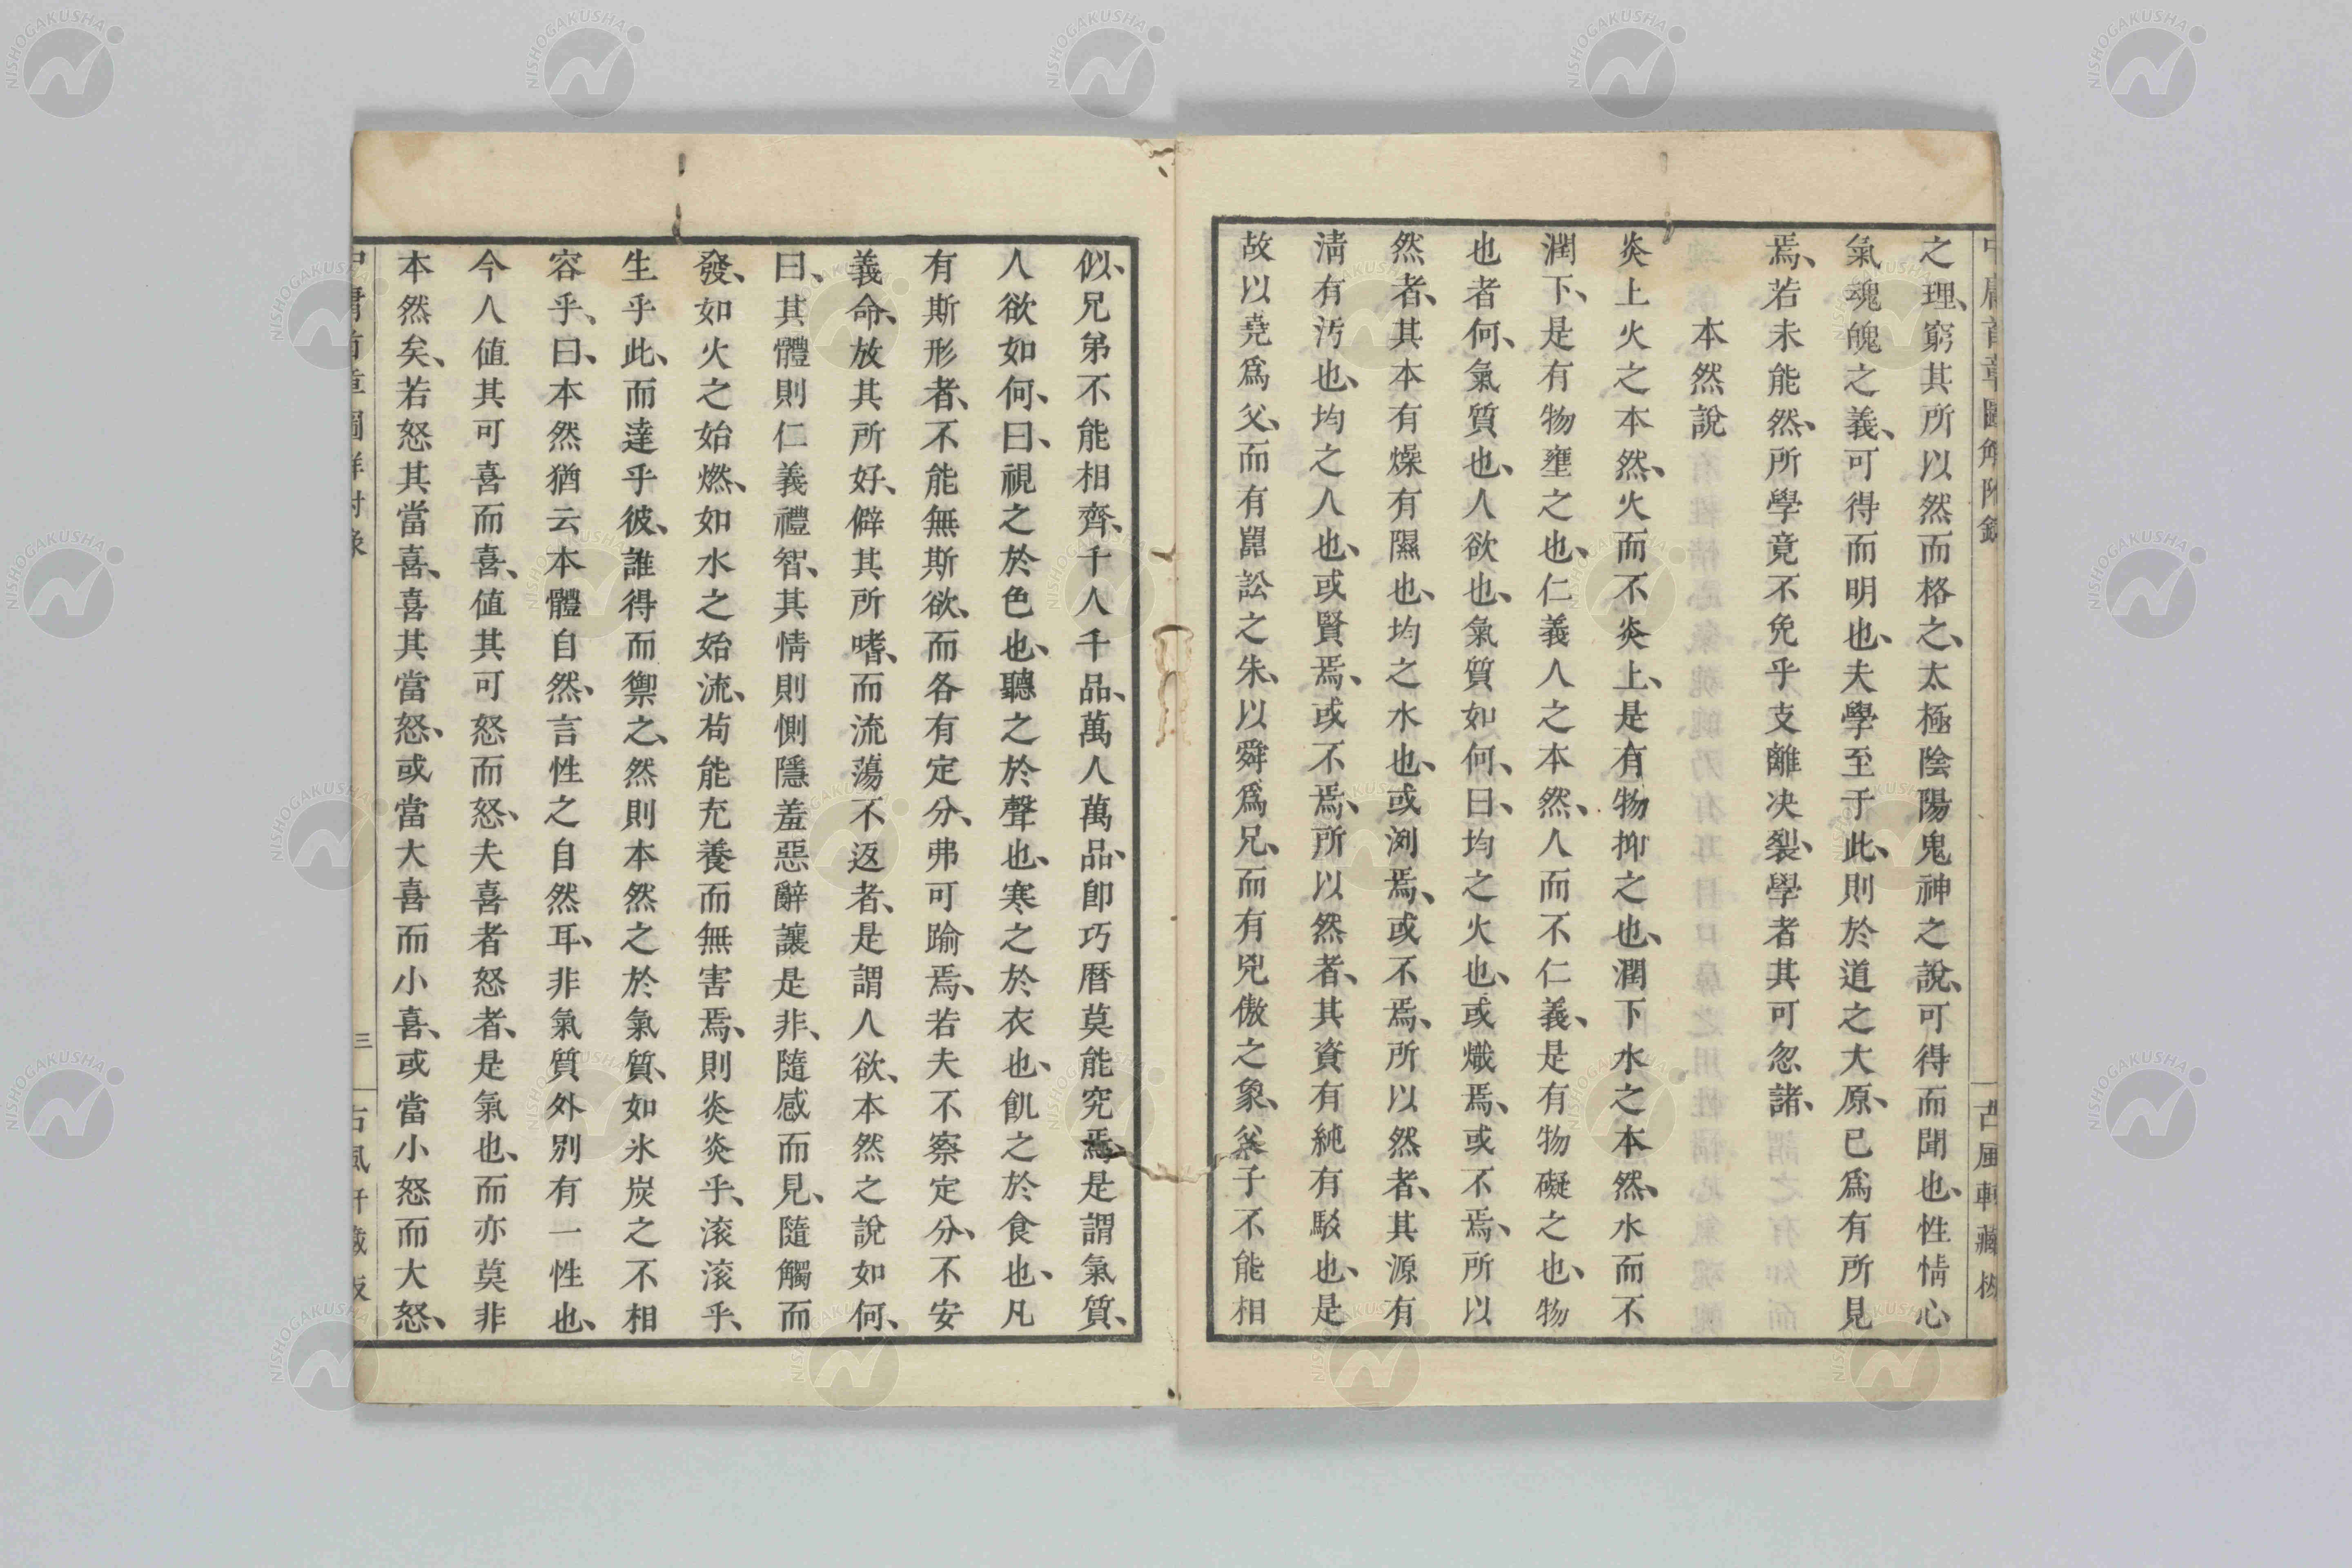 之理、窮其所以然而格之、太極陰陽鬼神之說、可得而聞也、性情心
氣魂魄之義、可得而明也、夫學至于此、則於道之大原、已爲有所見
焉、若未能然、所學竟不免乎支離決裂、學者其可忽諸、
本然說
炎上火之本然、火而不炎上、是有物抑之也、潤下水之本然、水而不
潤下、是有物壅之也、仁義人之本然、人而不仁義、是有物礙之也、物
也者何、氣質也、人欲也、氣質如何、曰、均之火也、或熾焉、或不焉、所以
然者、其本有燥有隰也、均之水也、或洌焉、或不焉、所以然者、其源有
淸有汚也、均之人也、或賢焉、或不焉、所以然者、其資有純有駁也、是
故以堯爲父、而有嚚訟之朱、以舜爲兄、而有兇傲之象、父子不能相
似、兄弟不能相齊、千人千品、萬人萬品、卽巧曆莫能究焉、是謂氣質、
人欲如何、曰、視之於色也、聽之於聲也、寒之於衣也、飢之於食也、凡
有斯形者、不能無斯欲、而各有定分、弗可踰焉、若夫不察定分、不安
義命、放其所好、僻其所嗜、而流蕩不返者、是謂人欲、本然之說如何、
曰、其體則仁義禮智、其情則惻隱羞惡辭讓是非、隨感而見、隨觸而
發、如火之始燃、如水之始流、苟能充養而無害焉、則炎炎乎、滾滾乎、
生乎此、而達乎彼、誰得而禦之、然則本然之於氣質、如氷炭之不相
容乎、曰、本然猶云本體自然、言性之自然耳、非氣質外別有一性也、
今人値其可喜而喜、値其可怒而怒、夫喜者怒者、是氣也、而亦莫非
本然矣、若怒其當喜、喜其當怒、或當大喜而小喜、或當小怒而大怒、
三